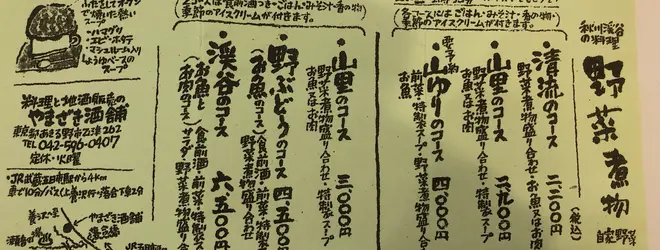 秋川渓谷
の料理
野菜煮物
自家野菜
(税込)
清流のコース 二、〇〇〇円
野菜煮物盛り合わせ・お魚又はお肉
山里のコース 二、九〇〇円
野菜煮物盛り合わせ・特製スープ
お魚又はお肉
要予約
山ゆりのコース
前菜・特製スープ・野菜煮物盛り合わせ
お魚
各コースにはごはん・みそ汁・香の物・
季節のアイスクリームが付きます。
山里のコース 三、〇〇〇円
野菜煮物盛り合わせ・特製スープ
お魚又はお肉
野ぶどうのコース 四、五〇〇円
(お魚のコース)
食前酒・前菜・特製スープ
野菜煮物盛り合わせ
渓谷のコース 六、五〇〇円
(お魚と
お肉のコース)
食前酒・前菜・特製スープ
サラダ・野菜煮物盛り合わせ
各コースは食前酒つき・ごはん・みそ汁・香の物・
季節のアイスクリームが付きます。
ふたをしてオーブン
で焼いた熱い
・ハマグリ
・エビ・ホタテ
・マシュルーム入り
しょうゆベースの
スープ
料理と地酒販売の
やまざき酒舗
東京都あきる野市乙津262
TEL 042-596-0407
定休・火曜
・JR武蔵五日市駅から4km
車で10分/バス(上養沢行・落合下車2分
やまざき酒舗